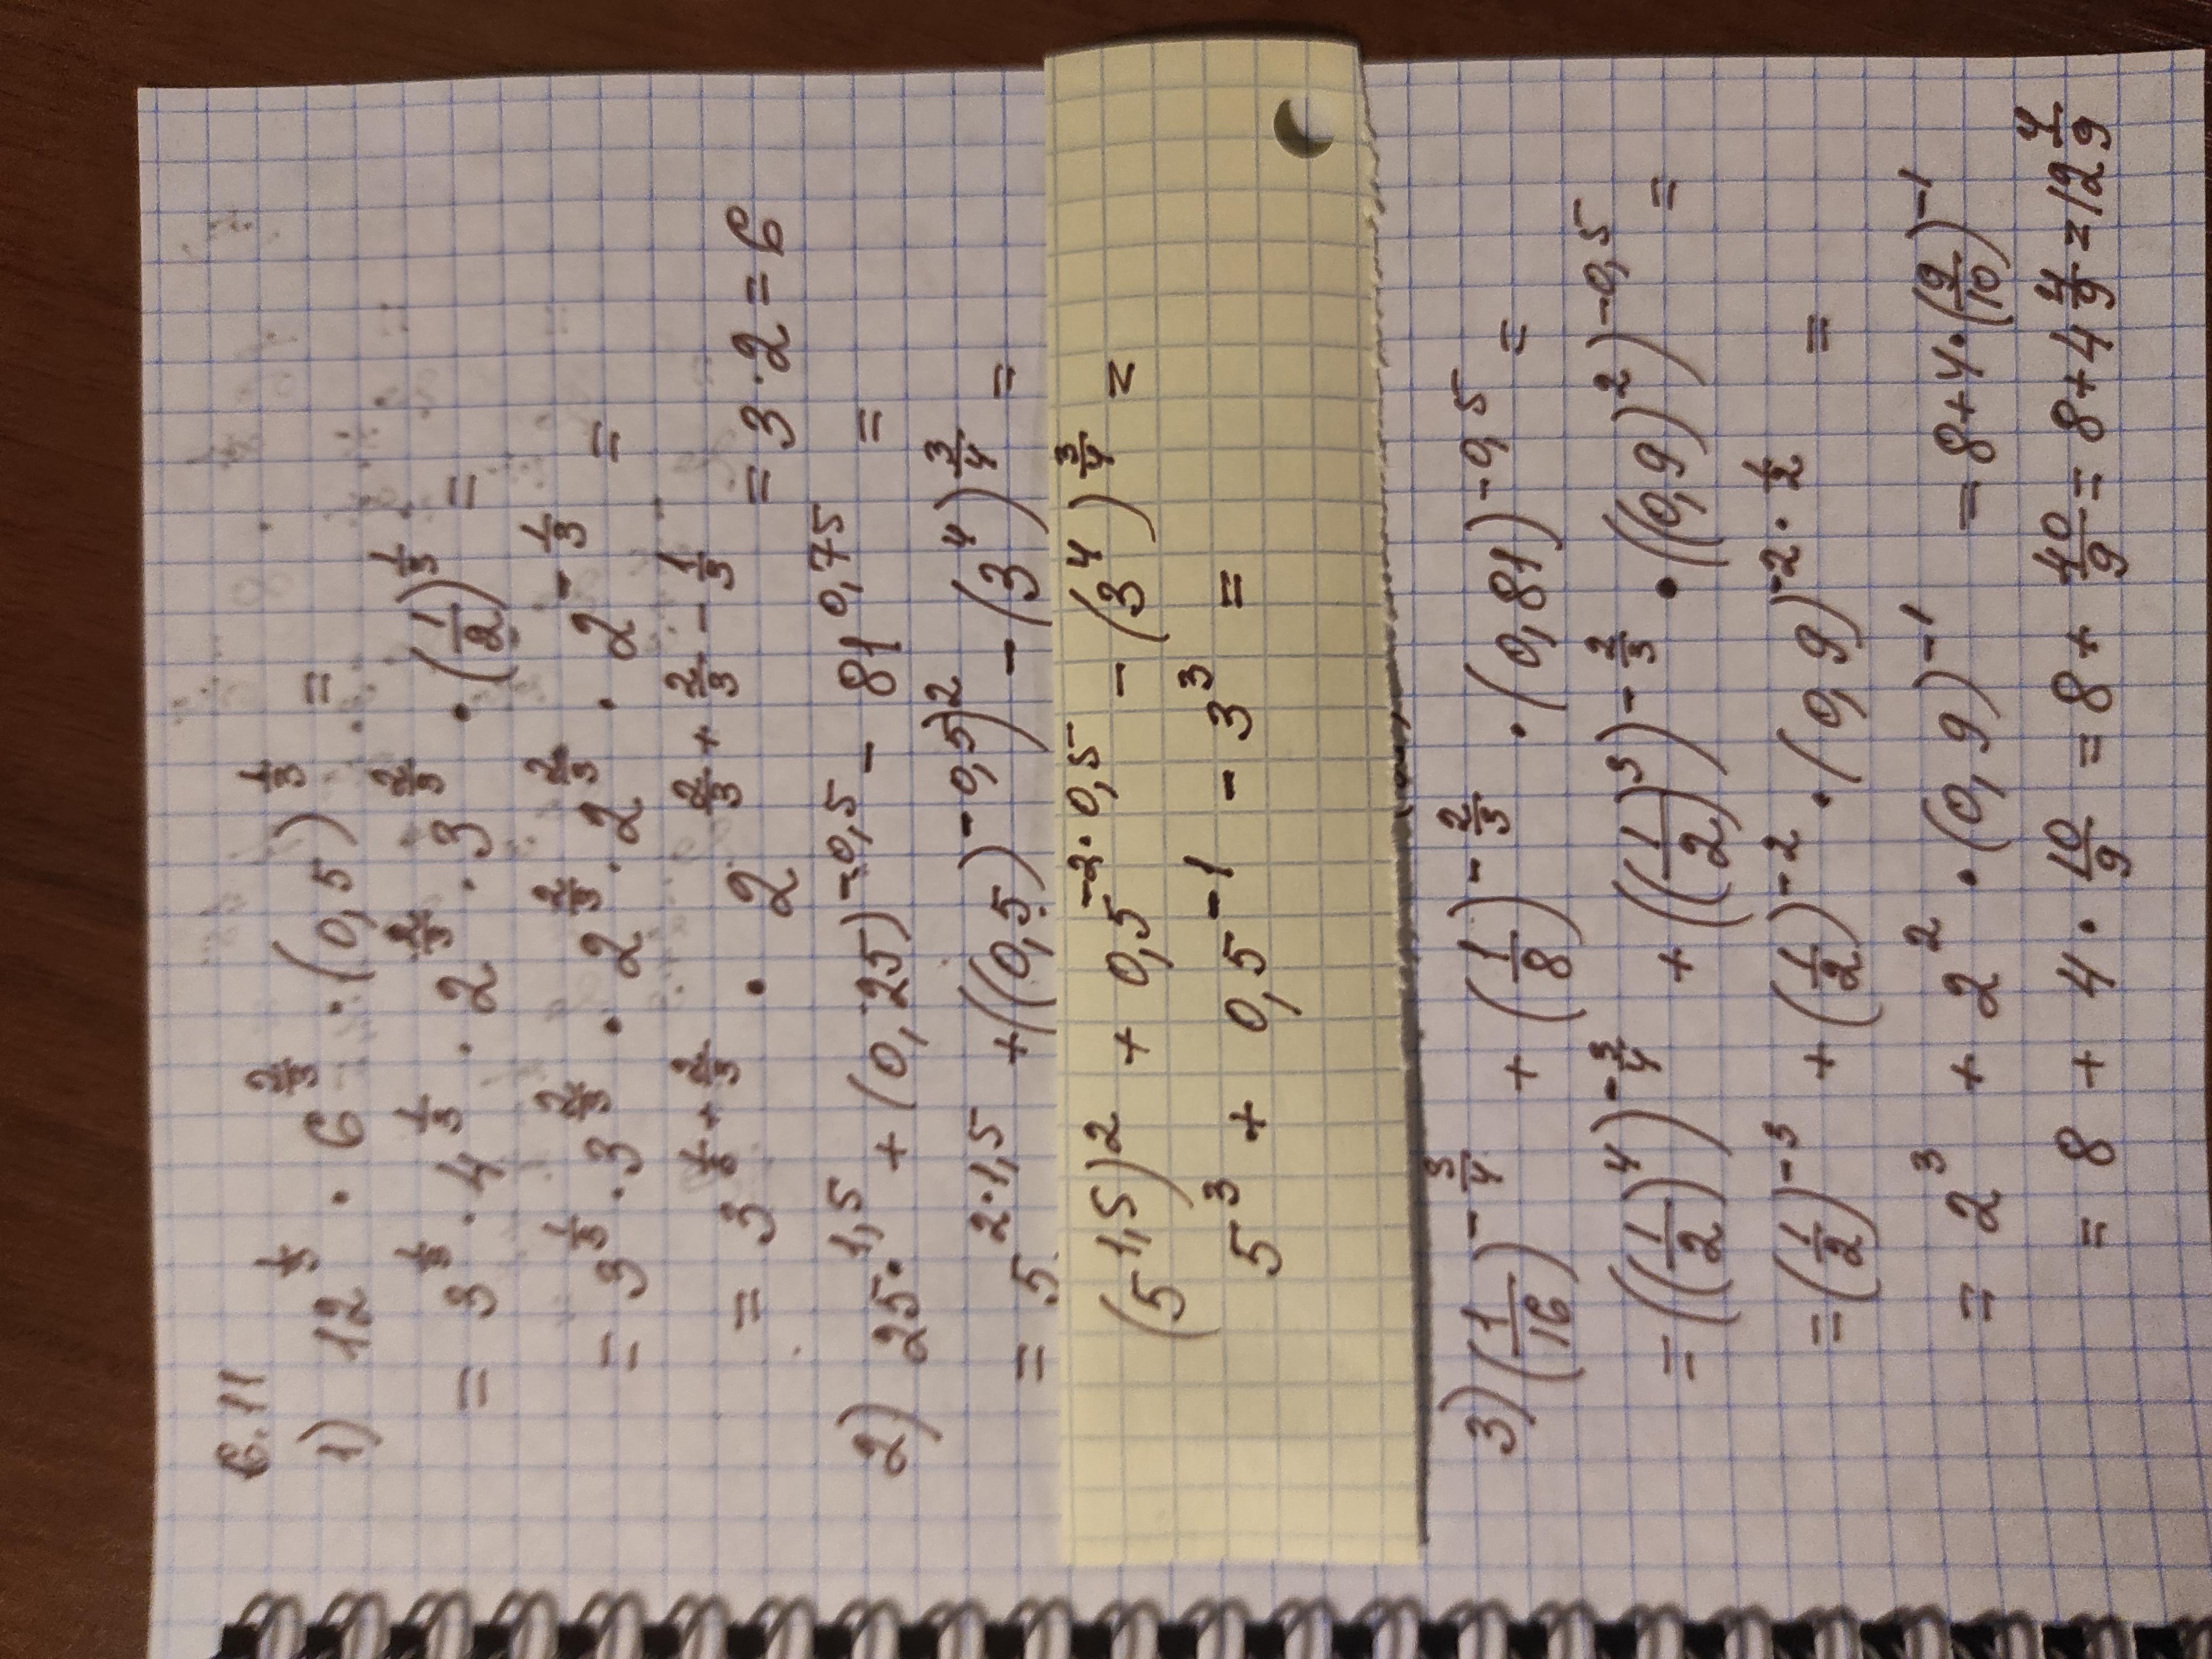 6.11
1) 12^{1/3} · 6^{2/3} · (0,5)^{1/3} =
= 3^{1/3} · 4^{1/3} · 2^{2/3} · 3^{2/3} · (1/2)^{1/3} =
= 3^{1/3} · 3^{2/3} · 2^{2/3} · 2^{2/3} · 2^{-1/3} =
= 3^{1/3 + 2/3} · 2^{2/3 + 2/3 - 1/3}
= 3 · 2 = 6
2) 25^{1,5} + (0,25)^{-0,5} - 81^{0,75} =
= 5^{2·1,5} + ((0,5)^{-0,5})^2 - (3^4)^{3/4} =
(5^{1,5})^2 + 0,5^{-2·0,5} - (3^4)^{3/4} =
5^3 + 0,5^{-1} - 3^3 =
3) (1/16)^{-3/4} + (1/8)^{-2/3} · (0,81)^{-0,5} =
= ((1/2)^4)^{-3/4} + ((1/2)^3)^{-2/3} · ((0,9)^2)^{-0,5} =
= (1/2)^{-3} + (1/2)^{-2} · (0,9)^{-2·1/2} =
= 2^3 + 2^2 · (0,9)^{-1} = 8+4·(9/10)^{-1}
= 8 + 4 · 10/9 = 8 + 40/9 = 8+4 4/9 = 12 4/9